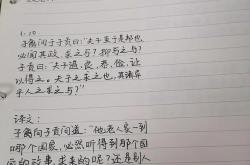 1.10
子禽问于子贡曰:"夫子至于是邦也,
必闻其政,求之与?抑与之与?"
子贡曰:"夫子温、良、恭、俭、让
以得之。夫子之求之也,其诸异
乎人之求之与?"
译文:
子禽向子贡问道:"他老人家一到
哪个国家,必然听得到那个国
家的政事,求来的呢?还是别人